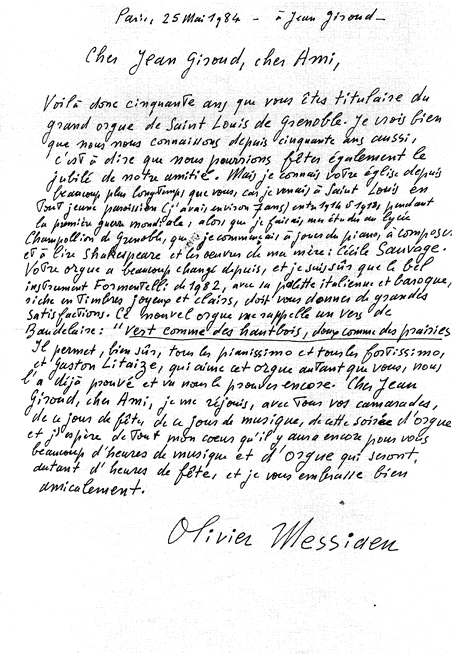 Paris, 25 Mai 1984 - à Jean Giroud -
Cher Jean Giroud, cher Ami,
Voilà donc cinquante ans, que vous êtes titulaire du
grand orgue de Saint Louis de Grenoble. Je crois bien
que nous nous connaissons depuis cinquante ans aussi,
c'est à dire que nous pourrions fêter également le
jubilé de notre amitié. Mais je connais votre église depuis
beaucoup plus longtemps que vous, car je venais à Saint Louis en
tout jeune paroissien (j'avais environ 7 ans) entre 1914 et 1918, pendant
la première guerre mondiale, alors que je faisais mes études au lycée
Champollion de Grenoble, que je commençais à jouer du piano, à composer
et à lire Shakespeare et les oeuvres de ma mère: Cécile Sauvage.
Votre orgue a beaucoup changé depuis, et je suis sûr que le bel
instrument Formentelli de 1982, avec sa palette italienne et baroque,
riche en timbres joyeux et clairs, doit vous donner de grandes
satisfactions. Ce nouvel orgue me rappelle un vers de
Baudelaire: "vert comme des hautbois, doux comme des prairies
Il permet, bien sûr, tous les pianissimo et tous les fortissimo,
et Gaston Litaize, qui aime cet orgue autant que vous, nous
l'a déjà prouvé et va nous le prouver encore. Cher Jean
Giroud, cher Ami, je me réjouis, avec tous vos camarades,
de ce jour de fête, de ce jour de musique, de cette soirée d'orgue
et j'espère de tout mon coeur qu'il y aura encore pour vous
beaucoup d'heures de musique et d'orgue qui seront
autant d'heures de fête, et je vous embrasse bien
amicalement.
Olivier Messiaen